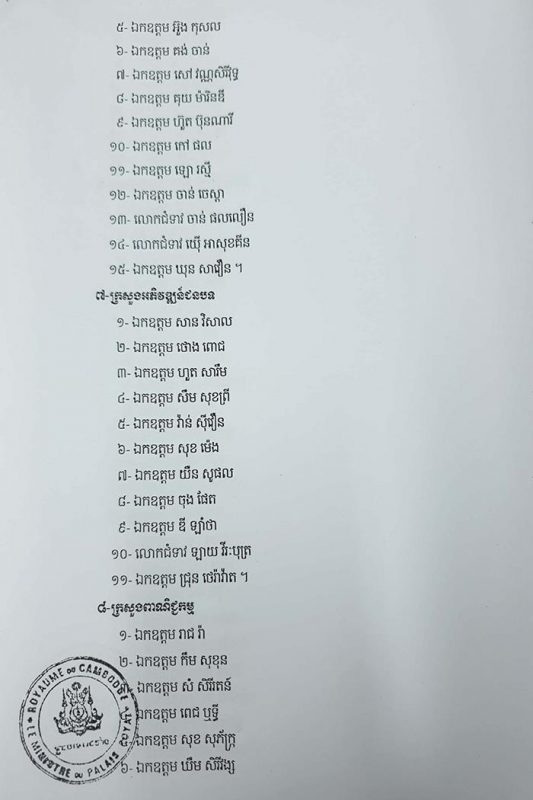 ៥- ឯកឧត្តម អ៊ួង កុសល
៦- ឯកឧត្តម គង់ ចាន់
៧- ឯកឧត្តម សៅ វណ្ណសិរីវុទ្ធ
៨- ឯកឧត្តម គុយ ម៉ារិនឌី
៩- ឯកឧត្តម ហ៊ួត ប៊ុនណារី
១០- ឯកឧត្តម កៅ ផល
១១- ឯកឧត្តម ឡោ រស្មី
១២- ឯកឧត្តម ចាន់ ចេស្តា
១៣- លោកជំទាវ ចាន់ ផលលឿន
១៤- លោកជំទាវ យ៉ើ អាសុខគីន
១៥- ឯកឧត្តម ឃុន សាវឿន ។
៧-ក្រសួងអភិវឌ្ឍន៍ជនបទ
១- ឯកឧត្តម សាន វិសាល
២- ឯកឧត្តម ថោង ពោជ
៣- ឯកឧត្តម ហួត សារឹម
៤- ឯកឧត្តម សឹម សុខព្រី
៥- ឯកឧត្តម វ៉ាន់ ស៊ីវឿន
៦- ឯកឧត្តម សុខ ម៉េង
៧- ឯកឧត្តម យឺន សូផល
៨- ឯកឧត្តម ចុង ផែត
៩- ឯកឧត្តម ឌី ឡាំថា
១០- លោកជំទាវ ឡាយ វីរៈបុត្រ
១១- ឯកឧត្តម ជ្រុន ថេរ៉ាវ៉ាត ។
៨-ក្រសួងពាណិជ្ជកម្ម
១- ឯកឧត្តម រាជ រ៉ា
២- ឯកឧត្តម កឹម សុខុន
ឯកឧត្តម សំ សិរីរតន៍
ឯកឧត្តម ពេជ ឬទ្ធី
ឯកឧត្តម សុខ សុភ័ក្ត្រ
៦- ឯកឧត្តម ឃឹម សិរីវង្ស
ROYAUME DU CAMBODGE
LE MINISTRE DU PALAIS ROYAL